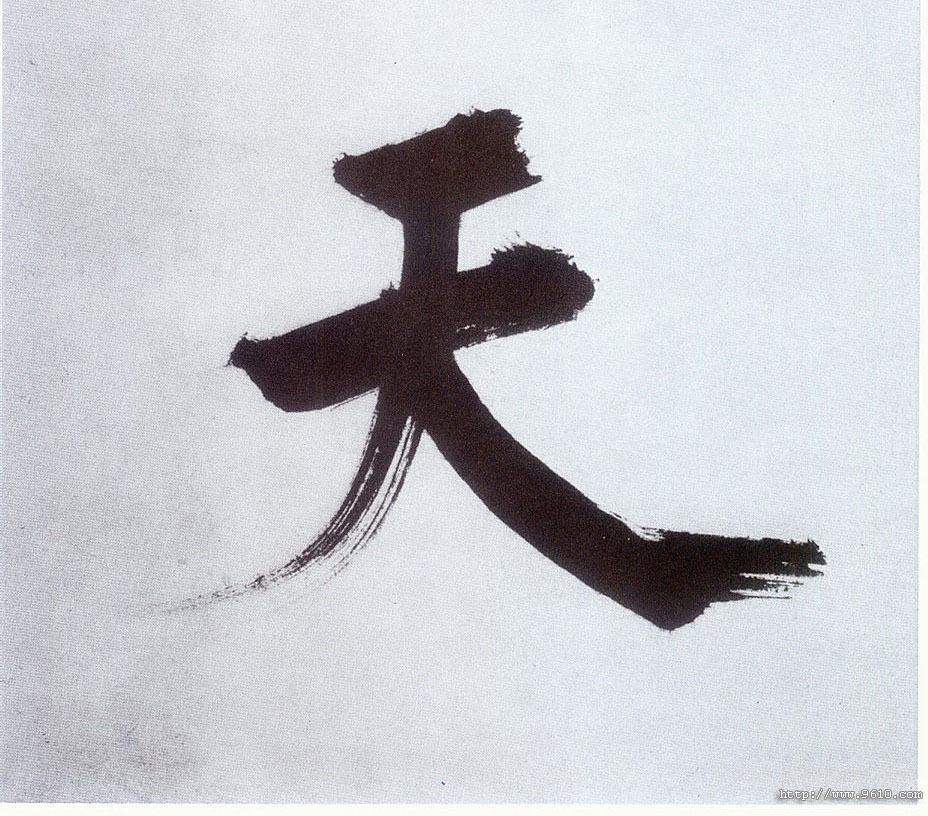 天
http://www.9610.com